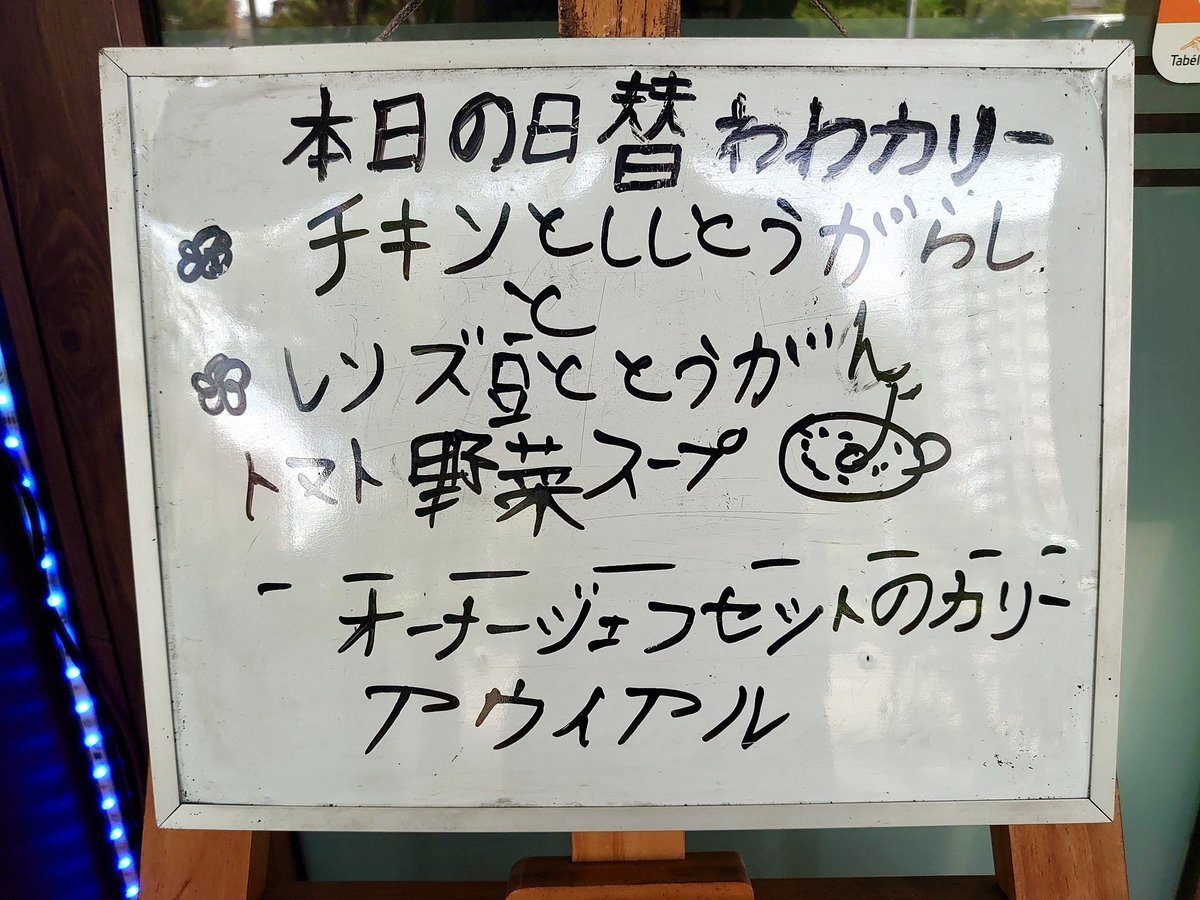 本日の日替わわカリー
チキンとししとうがらし
と
レンズ豆ととうがん
トマト野菜スープ
オーナーシェフセットのカリー
アウイアル
Tabél